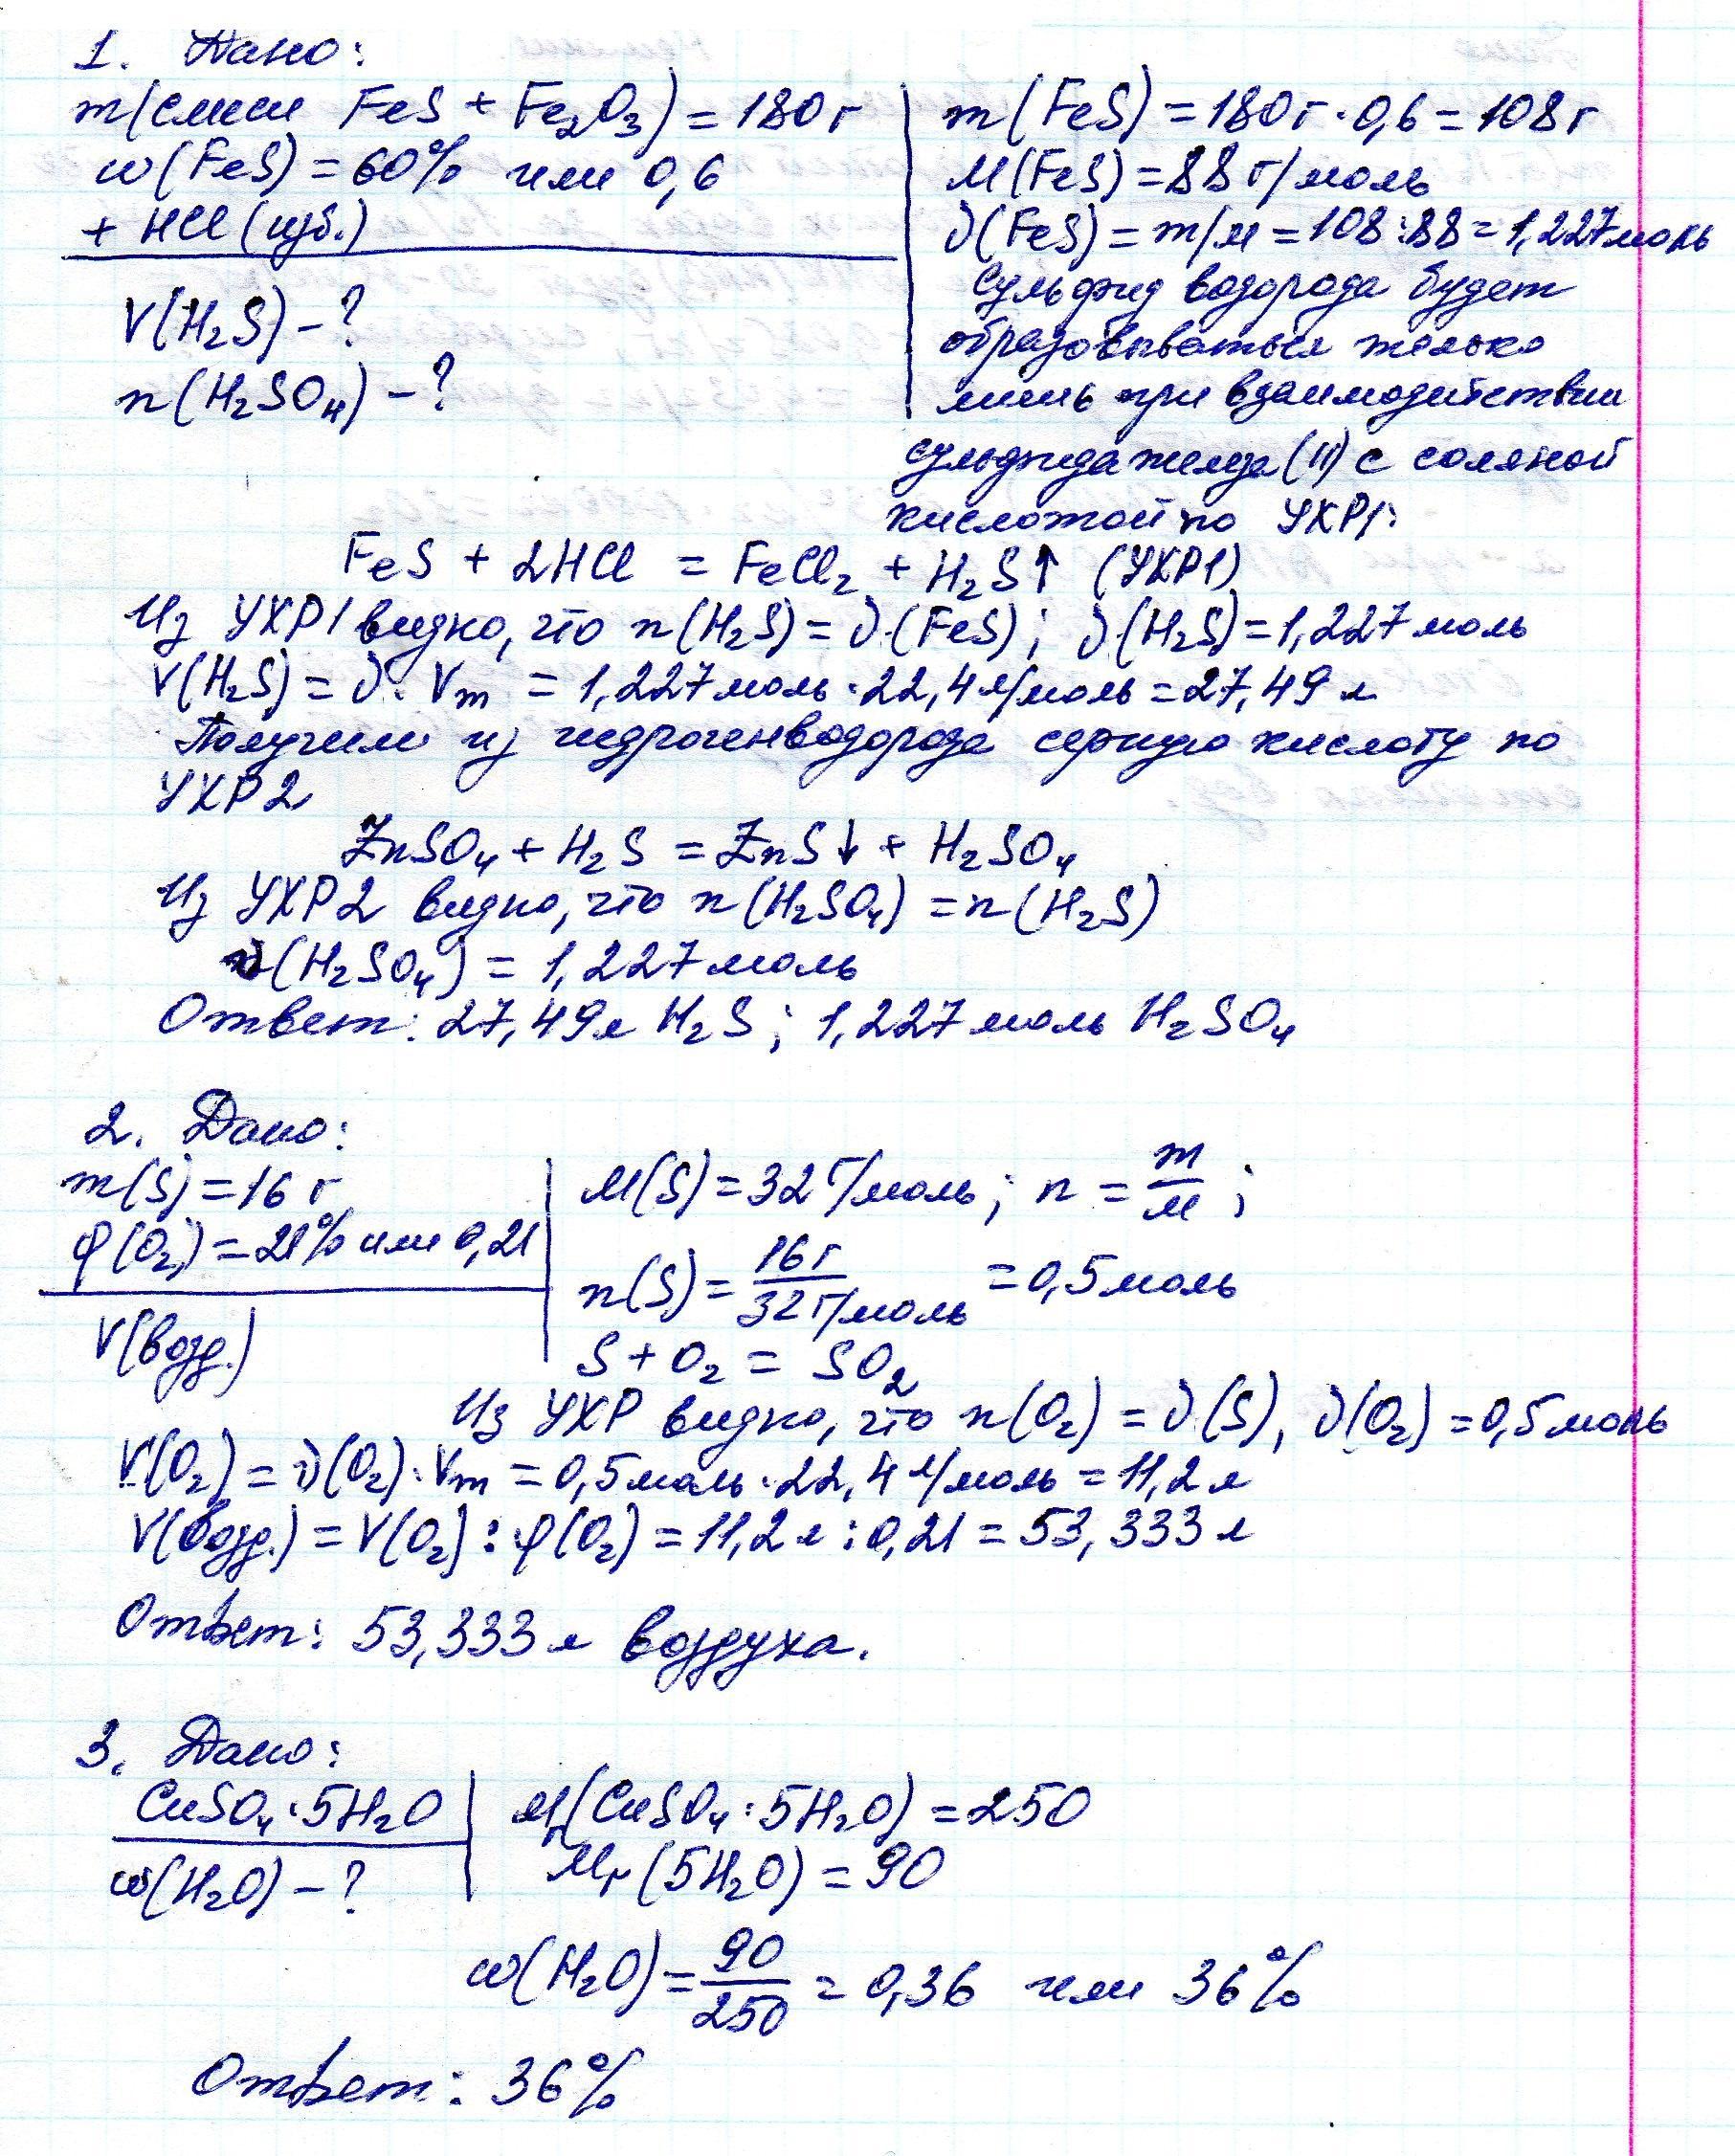 1. Дано:
m(смеси FeS + Fe₂O₃) = 180 г
ω(FeS) = 60% или 0,6
+ HCl (изб.)
V(H₂S) – ?
n(H₂SO₄) – ?
m(FeS) = 180 г · 0,6 = 108 г
M(FeS) = 88 г/моль
ν(FeS) = m/M = 108 : 88 = 1,227 моль
Сульфид водорода будет
образовываться только
лишь при взаимодействии
сульфида железа (II) с соляной
кислотой по УХР1:
FeS + 2HCl = FeCl₂ + H₂S↑ (УХР1)
Из УХР1 видно, что n(H₂S) = ν(FeS); ν(H₂S) = 1,227 моль
V(H₂S) = ν · Vm = 1,227 моль · 22,4 л/моль = 27,49 л
Получим из гидрогенводорода серную кислоту по
УХР2
ZnSO₄ + H₂S = ZnS↓ + H₂SO₄
Из УХР2 видно, что n(H₂SO₄) = n(H₂S)
ν(H₂SO₄) = 1,227 моль
Ответ: 27,49 л H₂S; 1,227 моль H₂SO₄
2. Дано:
m(S) = 16 г
φ(O₂) = 21% или 0,21
V(возд.)
M(S) = 32 г/моль; n = m/M;
n(S) = 16 г / 32 г/моль = 0,5 моль
S + O₂ = SO₂
Из УХР видно, что n(O₂) = ν(S), ν(O₂) = 0,5 моль
V(O₂) = ν(O₂) · Vm = 0,5 моль · 22,4 л/моль = 11,2 л
V(возд.) = V(O₂) : φ(O₂) = 11,2 л : 0,21 = 53,333 л
Ответ: 53,333 л воздуха.
3. Дано:
CuSO₄ · 5H₂O
ω(H₂O) – ?
Mr(CuSO₄ · 5H₂O) = 250
Mr(5H₂O) = 90
ω(H₂O) = 90/250 = 0,36 или 36%
Ответ: 36%